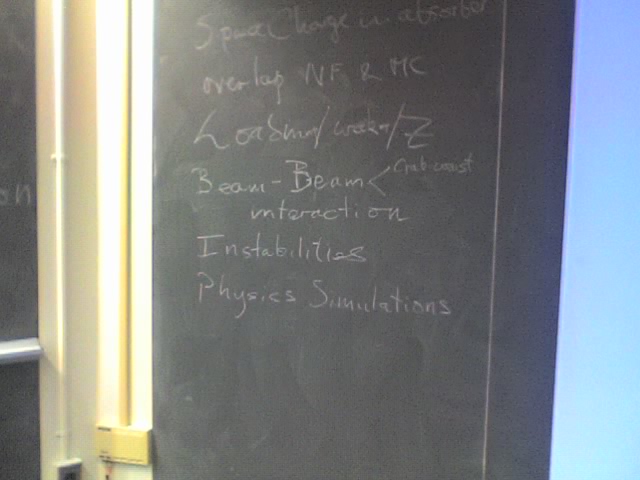 Space Charge in absorber
overlap NF & MC
Loading/wake/Z
Beam-Beam < Crab waist
interaction
Instabilities
Physics Simulations
on